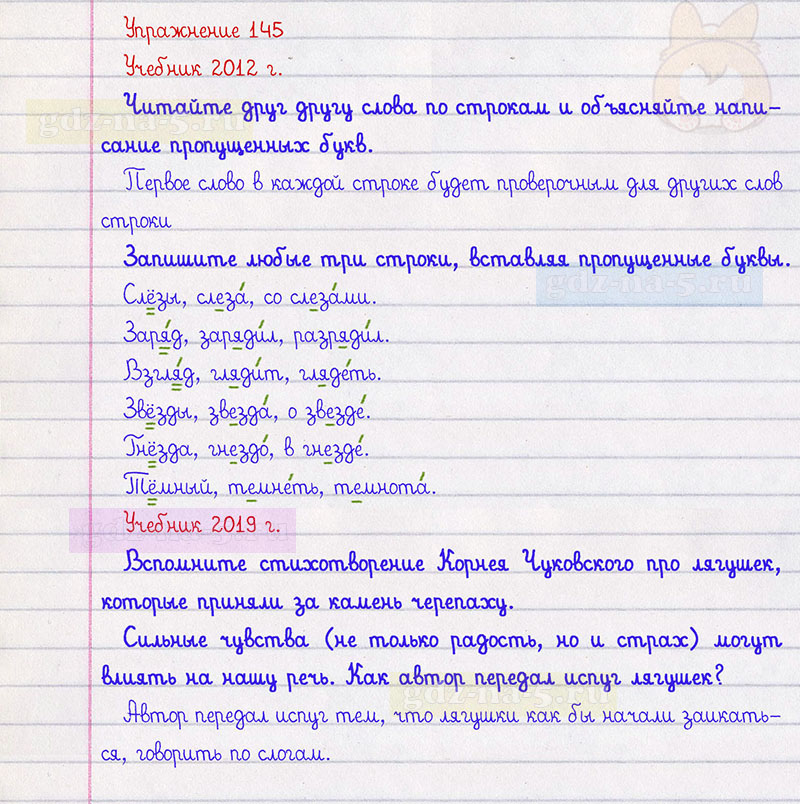 Упражнение 145
Учебник 2012 г.
Читайте друг другу слова по строкам и объясняйте напи-
сание пропущенных букв.
Первое слово в каждой строке будет проверочным для других слов
строки
Запишите любые три строки, вставляя пропущенные буквы.
Слёзы, слеза́, со слеза́ми.
Заря́д, заряди́л, разряди́л.
Взгля́д, гляди́т, гляде́ть.
Звёзды, звезда́, о звезде́.
Гнёзда, гнездо́, в гнезде́.
Тёмный, темне́ть, темнота́.
Учебник 2019 г.
Вспомните стихотворение Корнея Чуковского про лягушек,
которые приняли за камень черепаху.
Сильные чувства (не только радость, но и страх) могут
влиять на нашу речь. Как автор передал испуг лягушек?
Автор передал испуг тем, что лягушки как бы начали заикать-
ся, говорить по слогам.
gdz-na-5.ru
gdz-na-5.ru
gdz-na-5.ru
gdz-na-5.ru